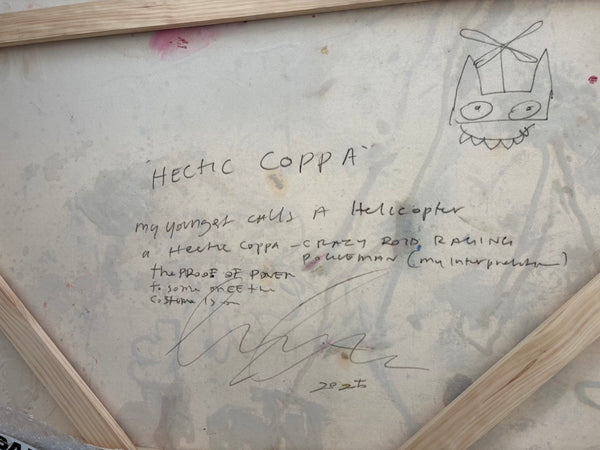 "HECTIC COPPA"
my youngest CALLS A Helicopter
a Hectic Coppa - CRAZY ROID RAGING
POLICEMAN (my interpretation)
the PROOF OF POWER
to some ONCE the
costume is on
2025